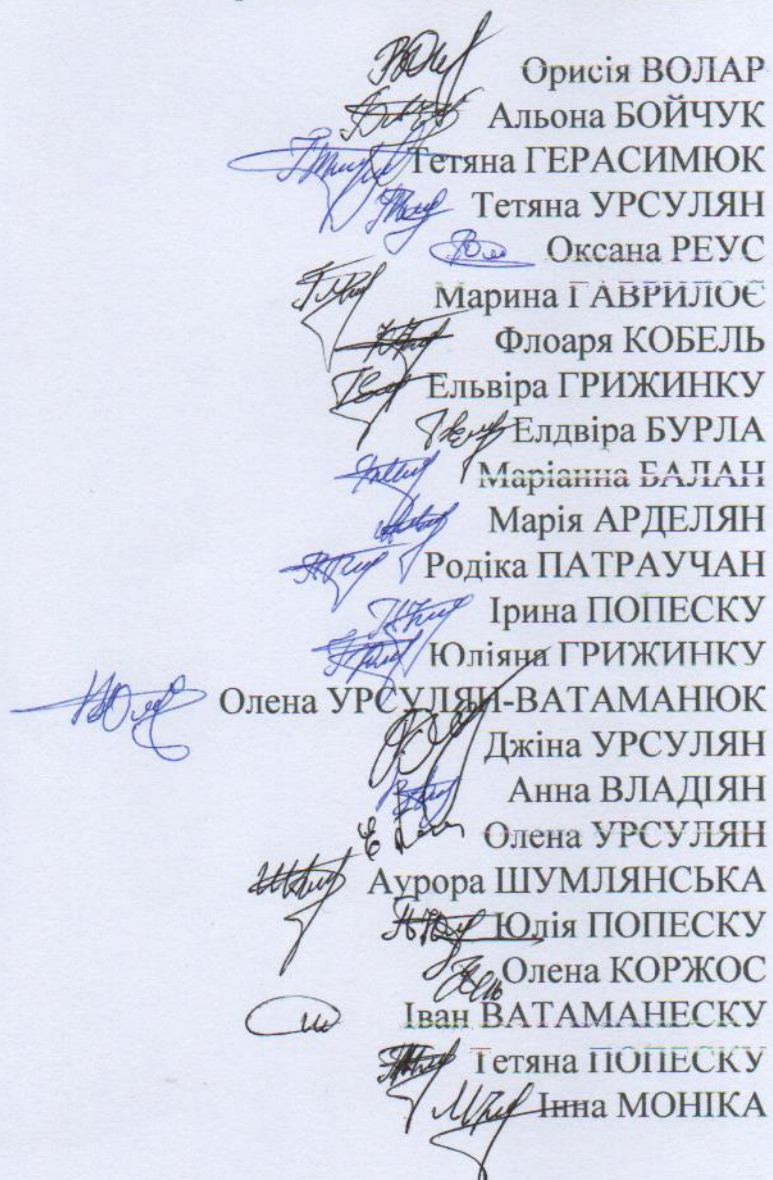 Орисія ВОЛАР
Альона БОЙЧУК
Тетяна ГЕРАСИМЮК
Тетяна УРСУЛЯН
Оксана РЕУС
Марина ГАВРИЛОЄ
Флоаря КОБЕЛЬ
Ельвіра ГРИЖИНКУ
Елдвіра БУРЛА
Маріанна БАЛАН
Марія АРДЕЛЯН
Родіка ПАТРАУЧАН
Ірина ПОПЕСКУ
Юліяна ГРИЖИНКУ
Олена УРСУЛЯН-ВАТАМАНЮК
Джіна УРСУЛЯН
Анна ВЛАДІЯН
Олена УРСУЛЯН
Аурора ШУМЛЯНСЬКА
Юлія ПОПЕСКУ
Олена КОРЖОС
Іван ВАТАМАНЕСКУ
Тетяна ПОПЕСКУ
Інна МОНІКА